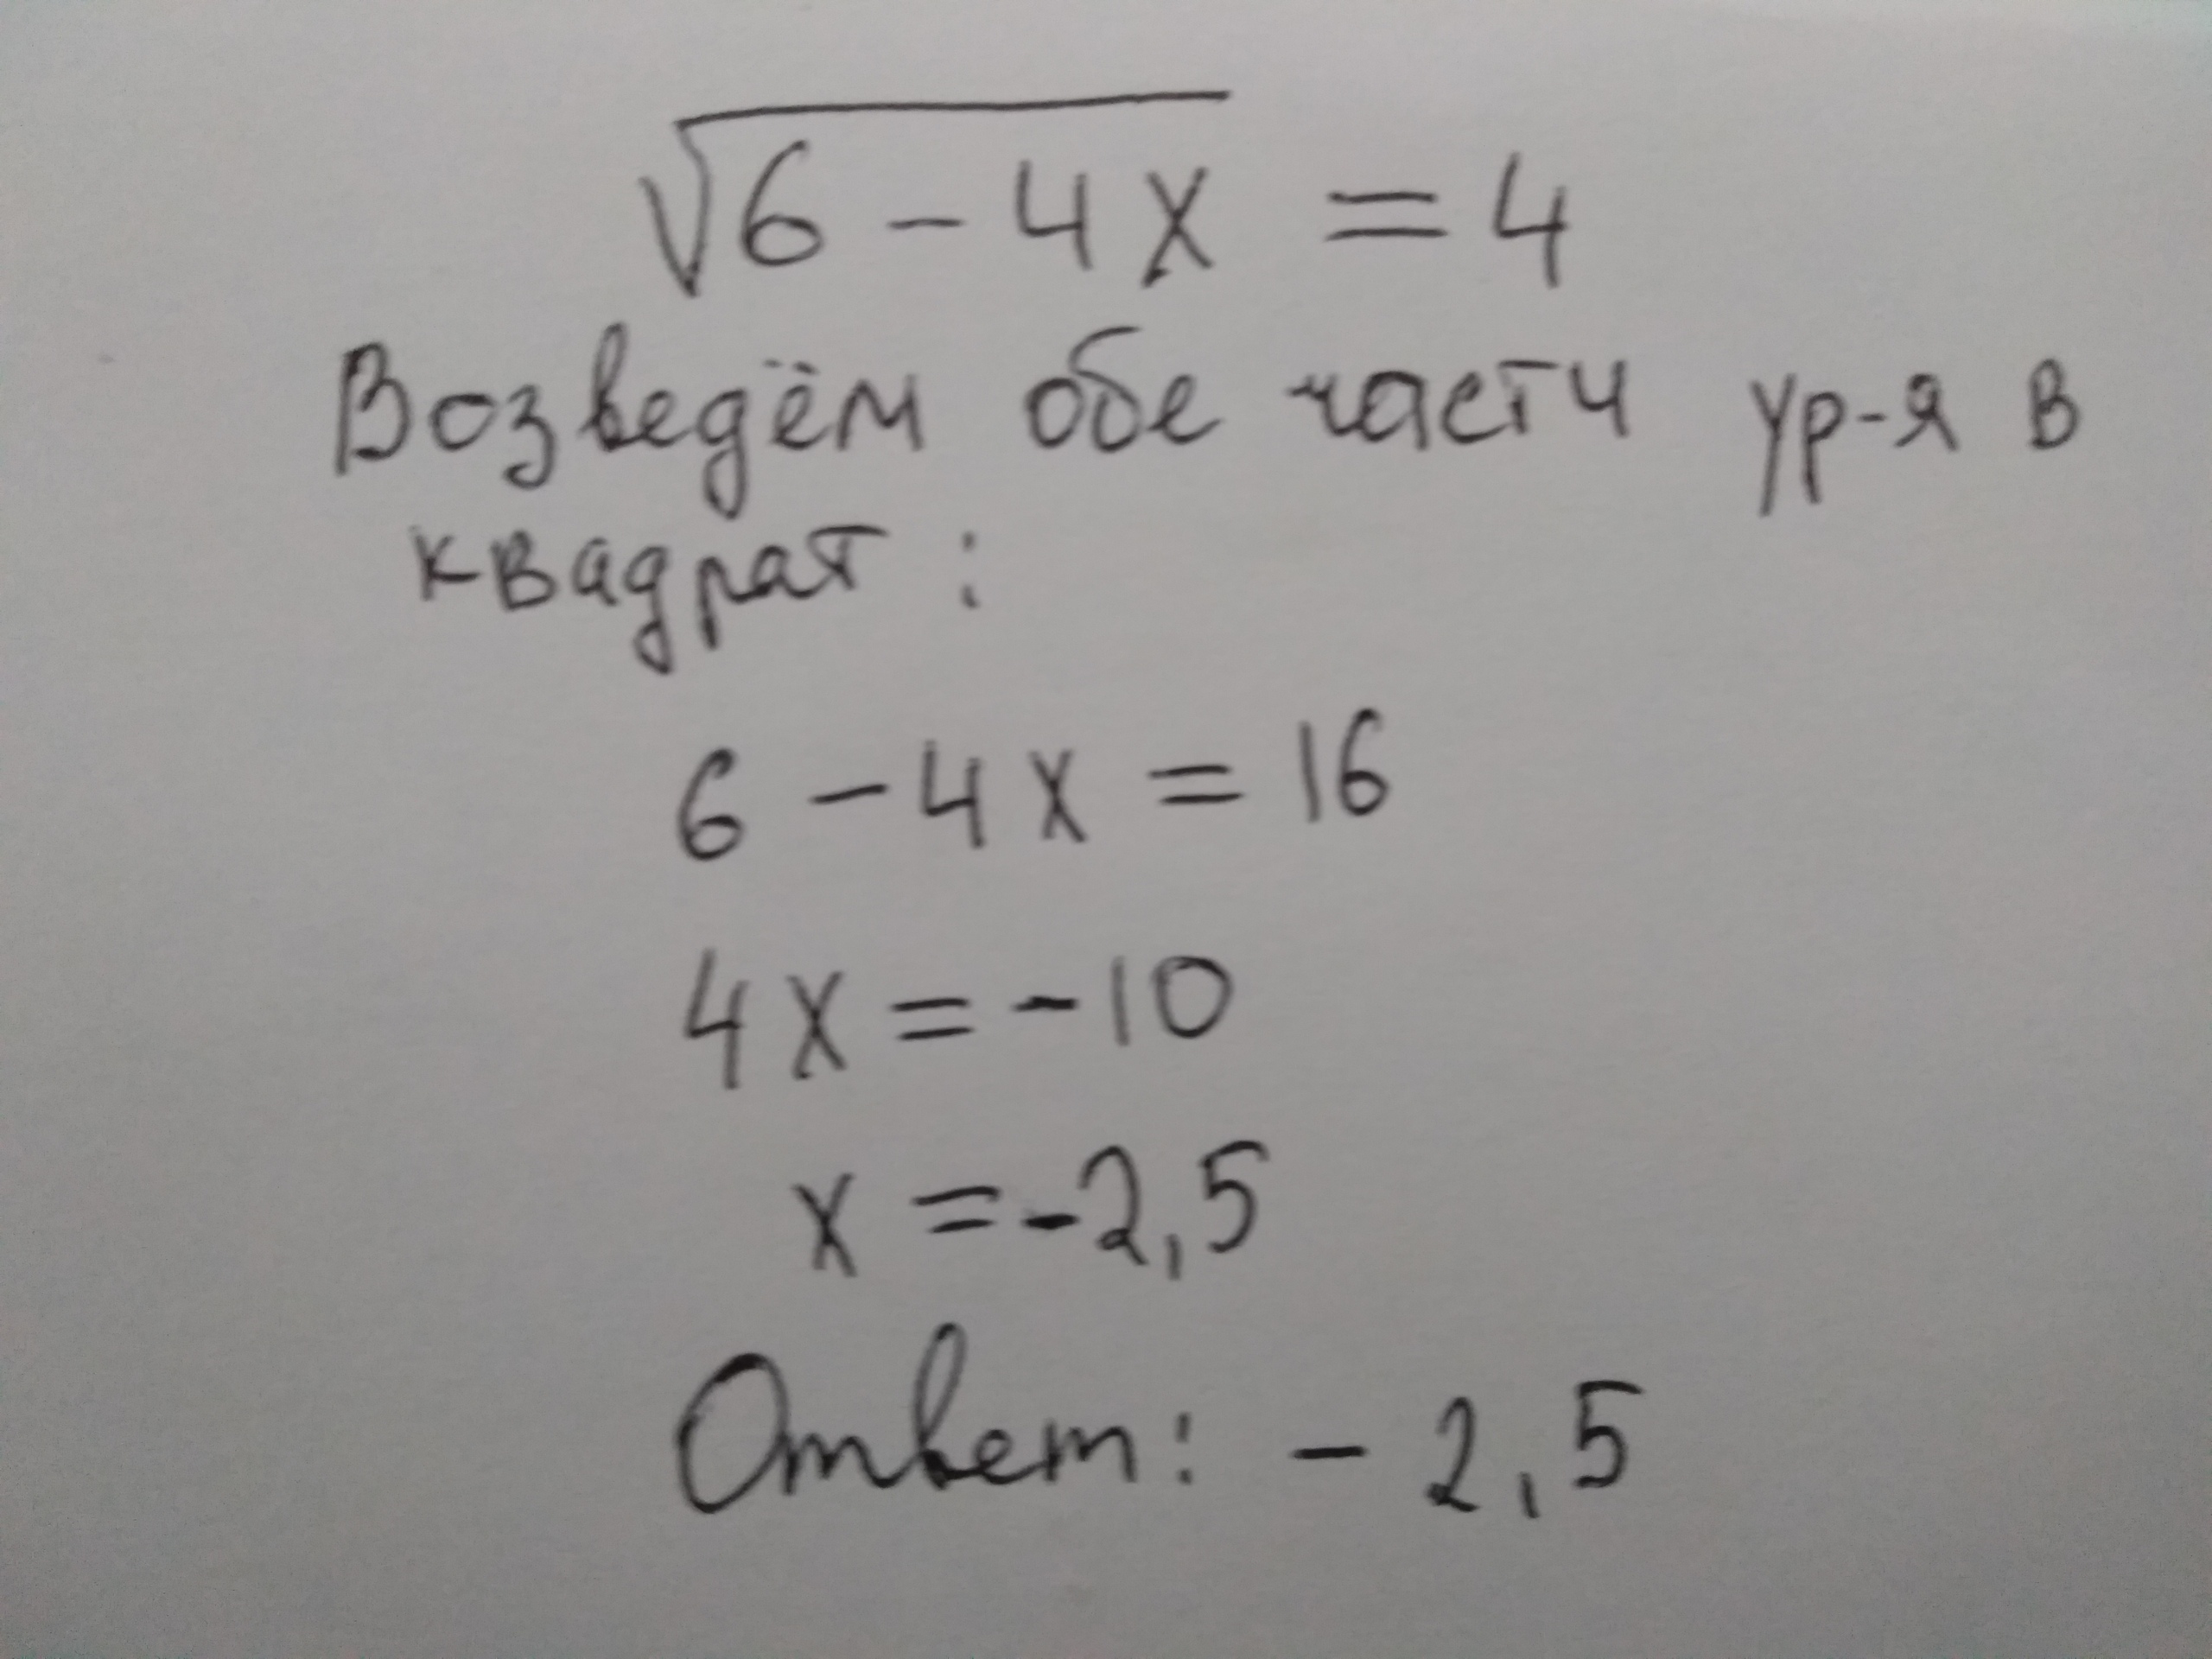 √6 - 4x = 4
Возведём обе части ур-я в
квадрат:
6 - 4x = 16
4x = -10
x = -2,5
Ответ: - 2,5